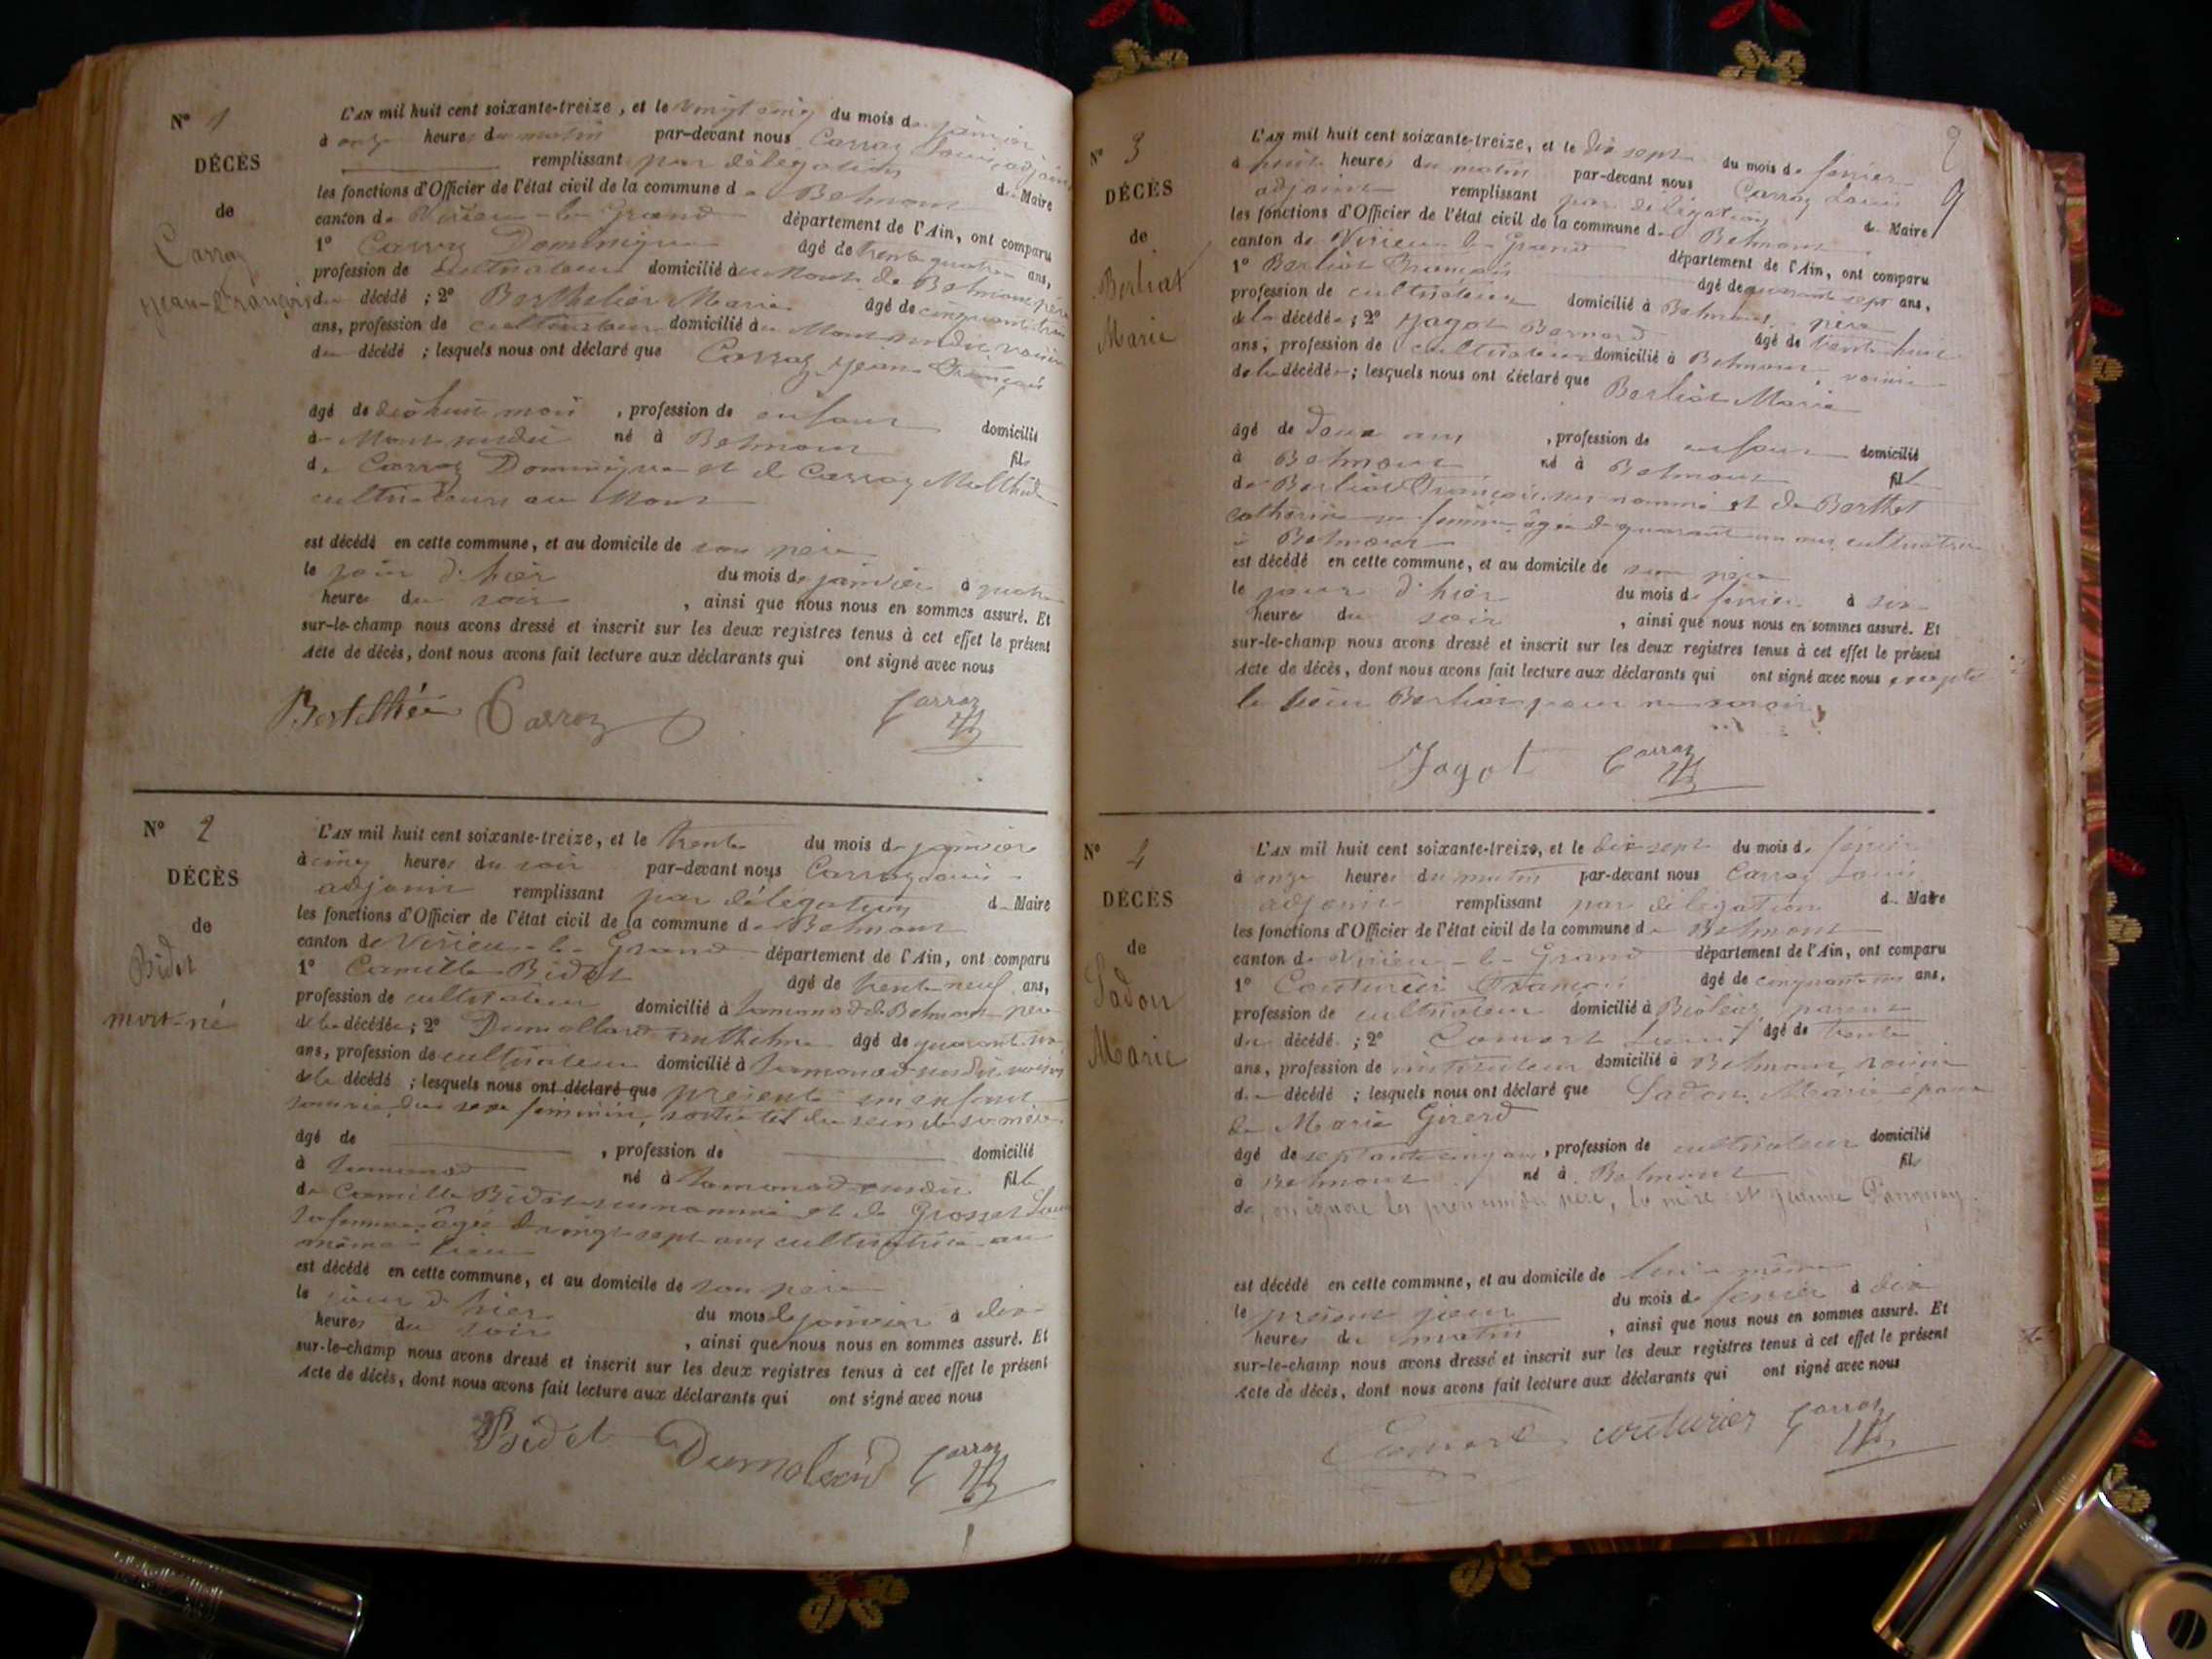 N° 1
DÉCÈS
de
Carroz
Jean-François
L'AN mil huit cent soixante-treize, et le vingt cinq du mois de janvier
à onze heures du matin par-devant nous Carroz Louis adjoint
remplissant par délégation
les fonctions d'Officier de l'état civil de la commune de Belmont de Maire
canton de Virieu-le-Grand département de l'Ain, ont comparu
1° Carroz Dominique âgé de trente quatre ans,
profession de cultivateur domicilié à Mont de Belmont père
du décédé ; 2° Berthelier Marie âgé de cinquante
ans, profession de cultivateur domicilié au Mont susdit, voisin
du décédé ; lesquels nous ont déclaré que Carroz Jean François
âgé de dix huit mois , profession de enfant domicilié
à Mont susdit né à Belmont fils
de Carroz Dominique et de Carroz
cultivateurs au Mont
est décédé en cette commune, et au domicile de son père
le jour d'hier du mois de janvier à quatre
heures du soir , ainsi que nous nous en sommes assuré. Et
sur-le-champ nous avons dressé et inscrit sur les deux registres tenus à cet effet le présent
Acte de décès, dont nous avons fait lecture aux déclarants qui ont signé avec nous
Carroz Carroz
N° 2
DÉCÈS
de
Bidet
mort-né
L'AN mil huit cent soixante-treize, et le trente du mois de janvier
à cinq heures du soir par-devant nous Carroz Louis
adjoint remplissant par délégation de Maire
les fonctions d'Officier de l'état civil de la commune de Belmont
canton de Virieu-le-Grand département de l'Ain, ont comparu
1° Camille Bidet âgé de trente-neuf ans,
profession de cultivateur domicilié à de Belmont père
de la décédée ; 2° Dumollard Anthelme âgé de quarante
ans, profession de cultivateur domicilié à susdit voisin
de la décédé ; lesquels nous ont déclaré que présenté un enfant
du sexe féminin, sortie du sein de sa mère
âgé de , profession de domicilié
à né à susdit fille
de Camille Bidet susnommé et de Grosset
sa femme âgée de vingt-sept ans cultivatrice au
même lieu
est décédé en cette commune, et au domicile de son père
le jour d'hier du mois de janvier à dix
heures du soir , ainsi que nous nous en sommes assuré. Et
sur-le-champ nous avons dressé et inscrit sur les deux registres tenus à cet effet le présent
Acte de décès, dont nous avons fait lecture aux déclarants qui ont signé avec nous
Bidet Dumolard Carroz
N° 3
DÉCÈS
de
Berliat
Marie
2
9
L'AN mil huit cent soixante-treize, et le dix sept du mois de février
à huit heures du matin par-devant nous Carroz Louis
adjoint remplissant par délégation de Maire
les fonctions d'Officier de l'état civil de la commune de Belmont
canton de Virieu le Grand département de l'Ain, ont comparu
1° Berliat François âgé de quarante sept ans,
profession de cultivateur domicilié à Belmont, père
de la décédée ; 2° Jagot Bernard âgé de trente huit
ans, profession de cultivateur domicilié à Belmont, voisin
de la décédée ; lesquels nous ont déclaré que Berliat Marie
âgé de deux ans , profession de enfant domicilié
à Belmont né à Belmont fille
de Berliat François sus nommé et de Berthet
Catherine sa femme âgée de quarante un ans, cultivatrice
à Belmont
est décédé en cette commune, et au domicile de son père
le jour d'hier du mois de février à six
heures du soir , ainsi que nous nous en sommes assuré. Et
sur-le-champ nous avons dressé et inscrit sur les deux registres tenus à cet effet le présent
Acte de décès, dont nous avons fait lecture aux déclarants qui ont signé avec nous excepté
le sieur Berliat pour ne savoir
Jagot Carroz
N° 4
DÉCÈS
de
Ladou
Marie
L'AN mil huit cent soixante-treize, et le dix sept du mois de février
à onze heures du matin par-devant nous Carroz Louis
adjoint remplissant par délégation de Maire
les fonctions d'Officier de l'état civil de la commune de Belmont
canton de Virieu-le-Grand département de l'Ain, ont comparu
1° Couturier François âgé de cinquante ans,
profession de cultivateur domicilié à parent
du décédé ; 2° âgé de trente
ans, profession de instituteur domicilié à Belmont, voisin
du décédé ; lesquels nous ont déclaré que Ladou Marie époux
de Marie Girerd
âgé de septante cinq ans, profession de cultivateur domicilié
à Belmont né à Belmont fils
de, on ignore les prénoms du père, la mère est Jeanne
est décédé en cette commune, et au domicile de lui-même
le présent jour du mois de février à dix
heures du matin , ainsi que nous nous en sommes assuré. Et
sur-le-champ nous avons dressé et inscrit sur les deux registres tenus à cet effet le présent
Acte de décès, dont nous avons fait lecture aux déclarants qui ont signé avec nous
couturier Carroz